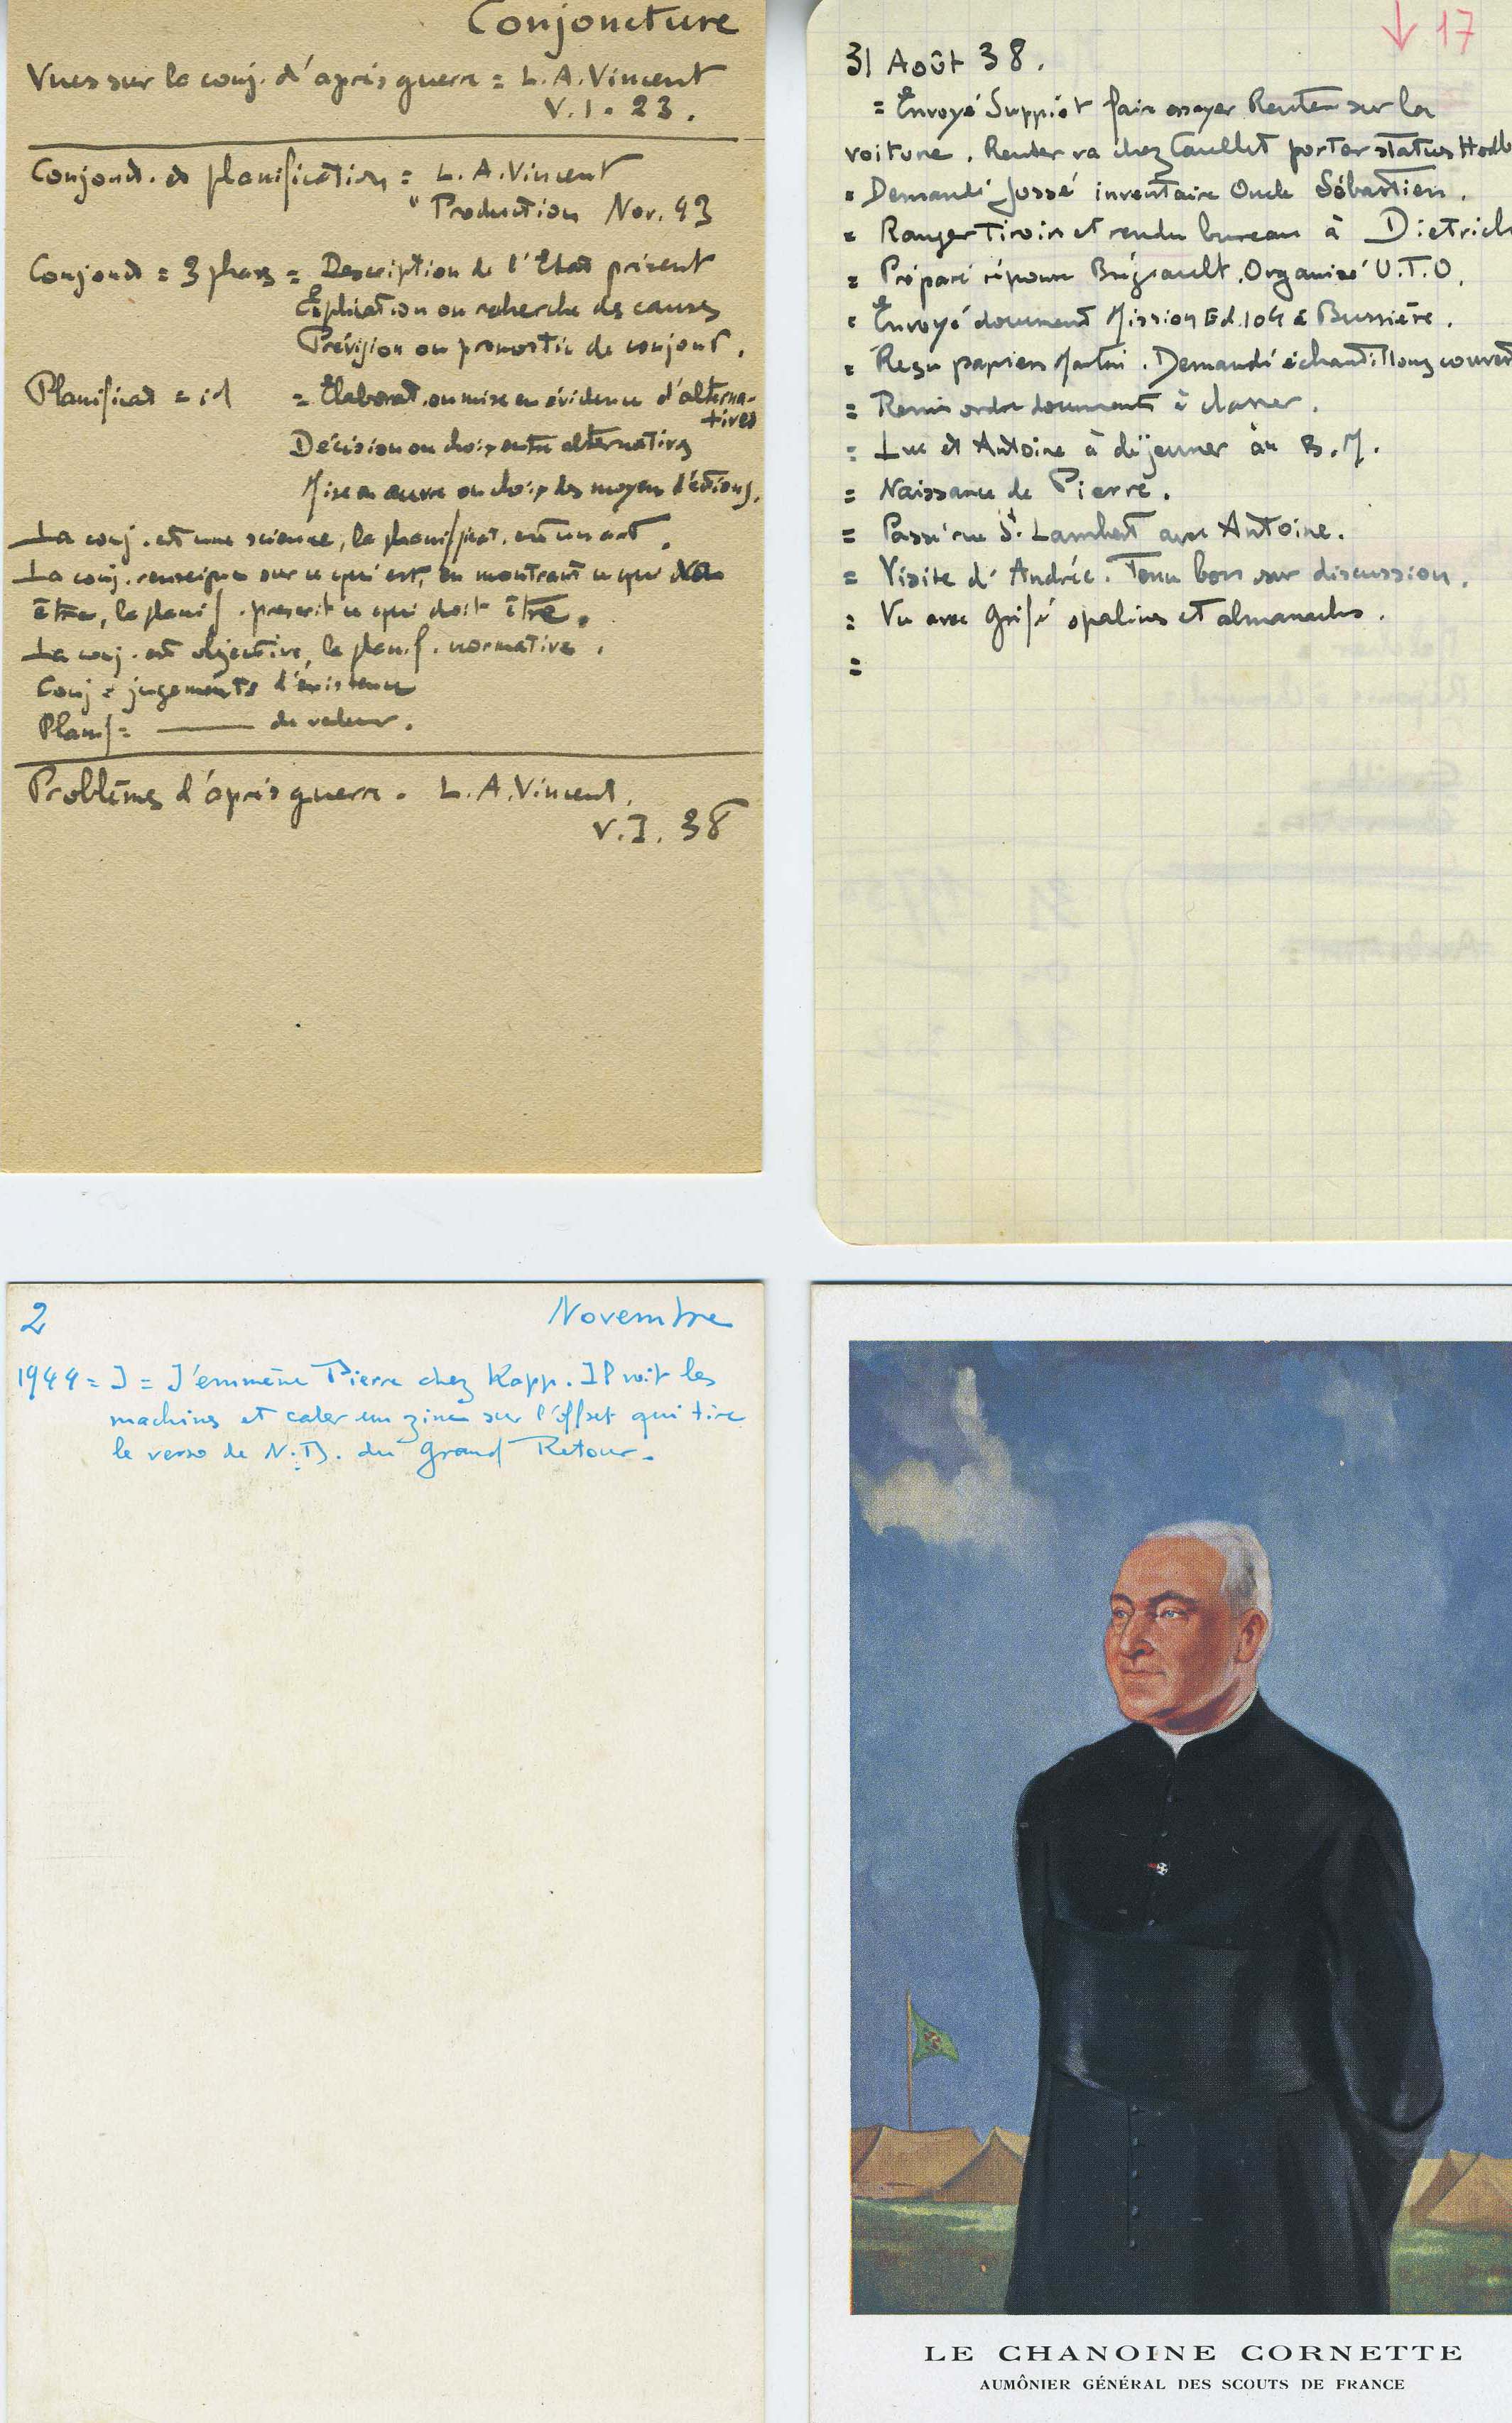 Conjoncture
Vues sur la conj. d'après guerre = L.A.Vincent
V.I. 23.
Conjonct. et planification = L.A.Vincent
" Production Nov. 43
Conjonct = 3 phases = Description de l'Etat présent
Explication ou recherche des causes
Prévision ou pronostic de conjonct.
Planificat = id = Elaborat. ou mise en évidence d'alterna-
tives
Décision ou choix entre alternatives
Mise en œuvre ou choix des moyens d'actions.
La conj. est une science, la planificat. est un art.
La conj. renseigne sur ce qui est, en montrant ce qui va
être, la planif. prescrit ce qui doit être.
La conj. est objective, la planif. normative.
Conj = jugements d'existence
Planif = ——— de valeur.
Problèmes d'après guerre. L.A.Vincent.
V.I. 38
↓ 17
31 Août 38.
= Envoyé Suppiot faire essayer Reuter sur la
voiture. Reuter va chez Caullet porter status
= Demandé Jossé inventaire Oncle Sébastien.
= Ranger Tiroirs et rendu bureau à Dietrich
= Préparé réponse Brégeault. Organisé U.T.O.
= Envoyé document Mission Ed. 104 à Bussière.
= Reçu papiers. Demandé échantillons
= Remis ordre documents à classer.
= Luc et Antoine à déjeuner au B.M.
= Naissance de Pierre.
= Passé rue St Lambert avec Antoine.
= Visite d'Andrée. Tenu bon sur discussion.
= Vu avec opalines et almanachs.
=
2 Novembre
1944 = J = J'emmène Pierre chez Kapp. Il voit les
machines et caler un zinc sur l'offset qui tire
le verso de N.D. du Grand Retour.
LE CHANOINE CORNETTE
AUMÔNIER GÉNÉRAL DES SCOUTS DE FRANCE